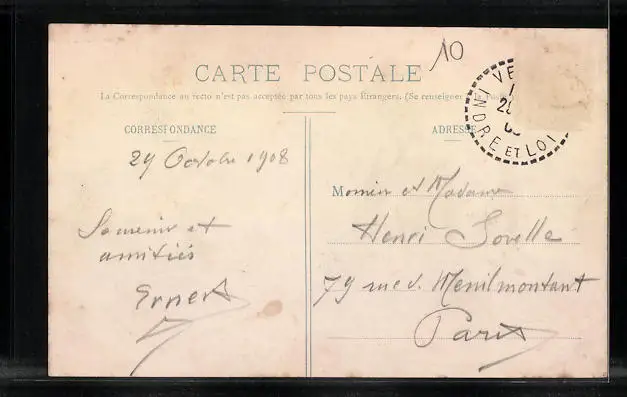 10
CARTE POSTALE
La Correspondance au recto n'est pas acceptée par tous les pays Étrangers. (Se renseigner à la
CORRESPONDANCE
ADRESSE
VE
INDRE ET LOI
29 Octobre 1908
Souvenir et
amitiés
Ernest
Monsieur et Madame
Henri
79 rue de Menilmontant
Paris